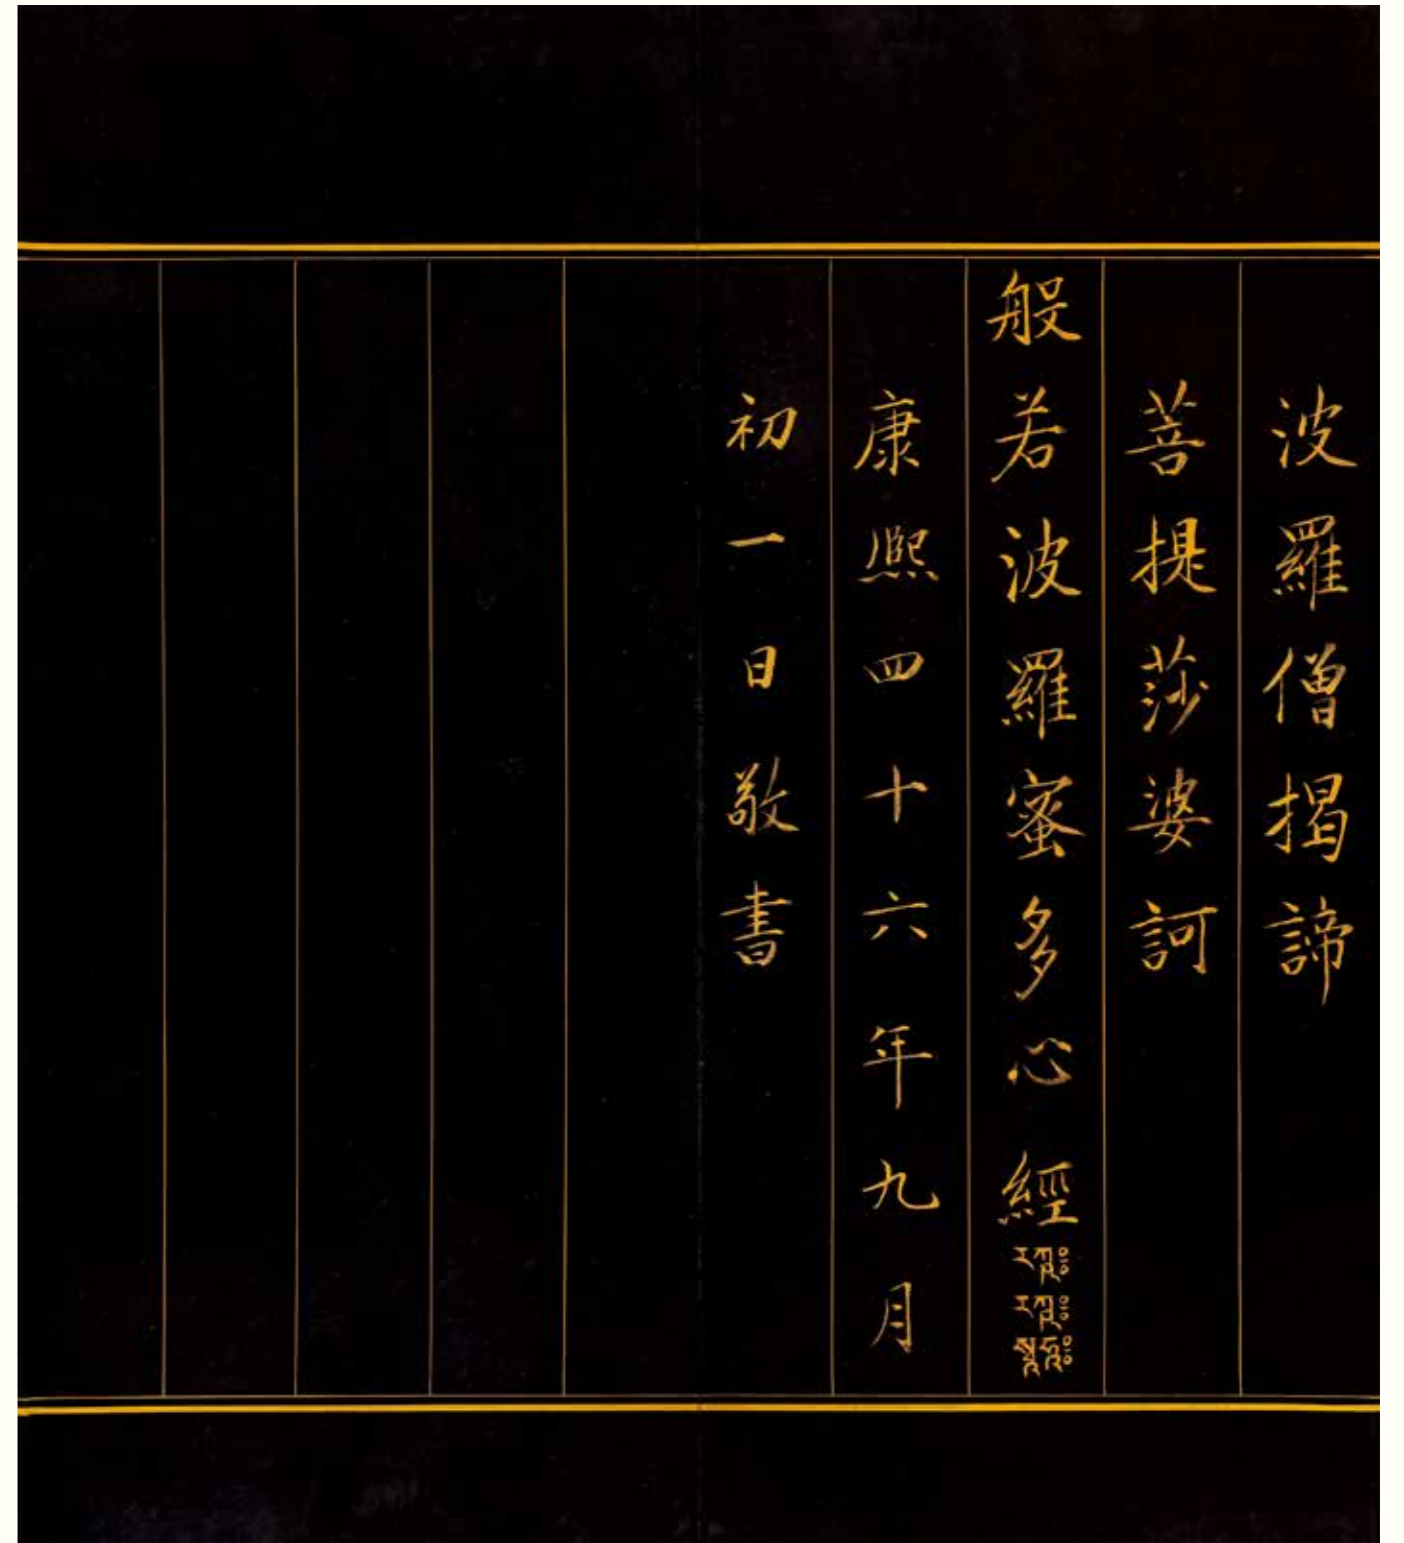 波羅僧揭諦
菩提莎婆訶
般若波羅蜜多心經
康熙四十六年九月
初一日敬書